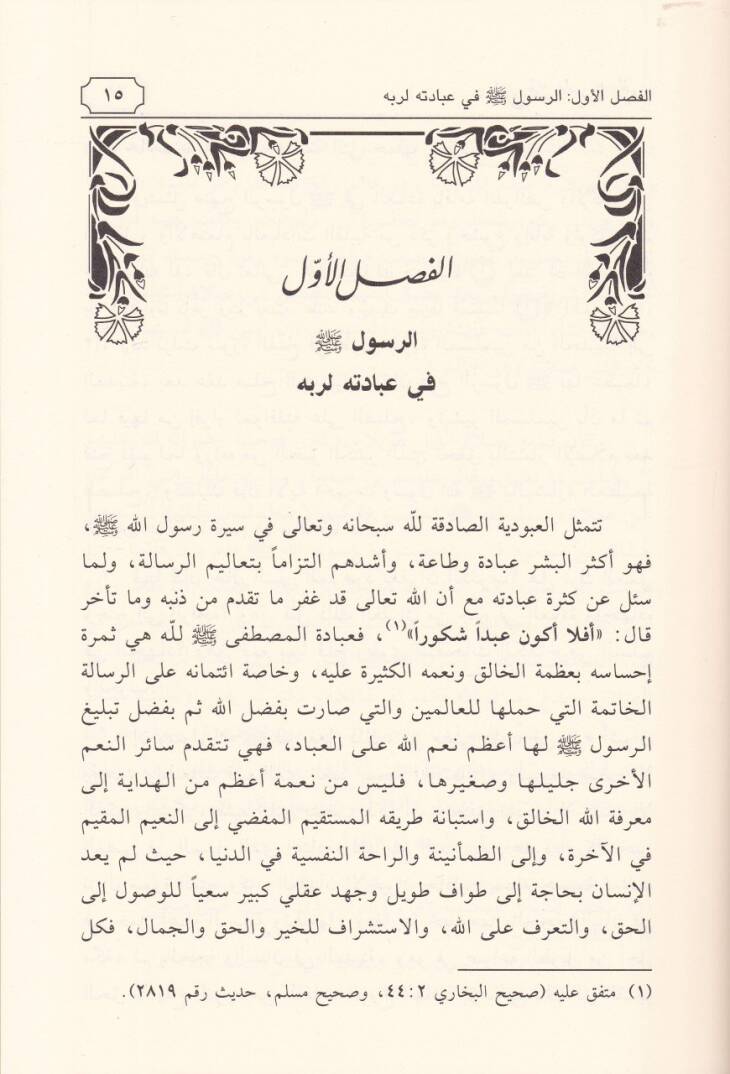 الفصل الأول: الرسول ﷺ في عبادته لربه
١٥
الفصل الأوّل
الرسول ﷺ
في عبادته لربه
تتمثل العبودية الصادقة للّه سبحانه وتعالى في سيرة رسول الله ﷺ،
فهو أكثر البشر عبادة وطاعة، وأشدهم التزاماً بتعاليم الرسالة، ولما
سئل عن كثرة عبادته مع أن الله تعالى قد غفر ما تقدم من ذنبه وما تأخر
قال: «أفلا أكون عبداً شكوراً»(١)، فعبادة المصطفى ﷺ للّه هي ثمرة
إحساسه بعظمة الخالق ونعمه الكثيرة عليه، وخاصة ائتمانه على الرسالة
الخاتمة التي حملها للعالمين والتي صارت بفضل الله ثم بفضل تبليغ
الرسول ﷺ لها أعظم نعم الله على العباد، فهي تتقدم سائر النعم
الأخرى جليلها وصغيرها، فليس من نعمة أعظم من الهداية إلى
معرفة الله الخالق، واستبانة طريقه المستقيم المفضي إلى النعيم المقيم
في الآخرة، وإلى الطمأنينة والراحة النفسية في الدنيا، حيث لم يعد
الإنسان بحاجة إلى طواف طويل وجهد عقلي كبير سعياً للوصول إلى
الحق، والتعرف على الله، والاستشراف للخير والحق والجمال، فكل
(١) متفق عليه (صحيح البخاري ٤٤:٢، وصحيح مسلم، حديث رقم ٢٨١٩).